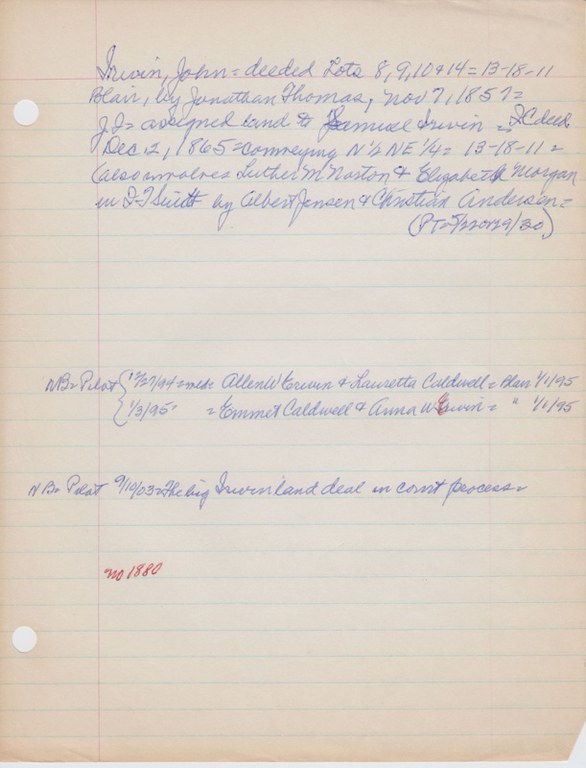 Irwin, John = deeded Lots 8, 9, 10 & 14 = 13-18-11
Blair, by Jonathan Thomas, Nov 7, 1857 =
J I = assigned land to Samuel Irwin = deed
Dec 12, 1865 = conveying N½ NE ¼ = 13-18-11 =
(also involves Luther M Norton & Elizabeth Morgan
in by Albert Jensen & Christian Andersen =
(PT =
NB = Pilot {12/27/94 = wed = Allen W Erwin & Lauretta Caldwell = Blair 1/1/95
{1/3/95 = Emmet Caldwell & Anna W Erwin = " 1/1/95
NB = Pilot 9/10/03 = The big Irwin land deal in court process =
no 1880